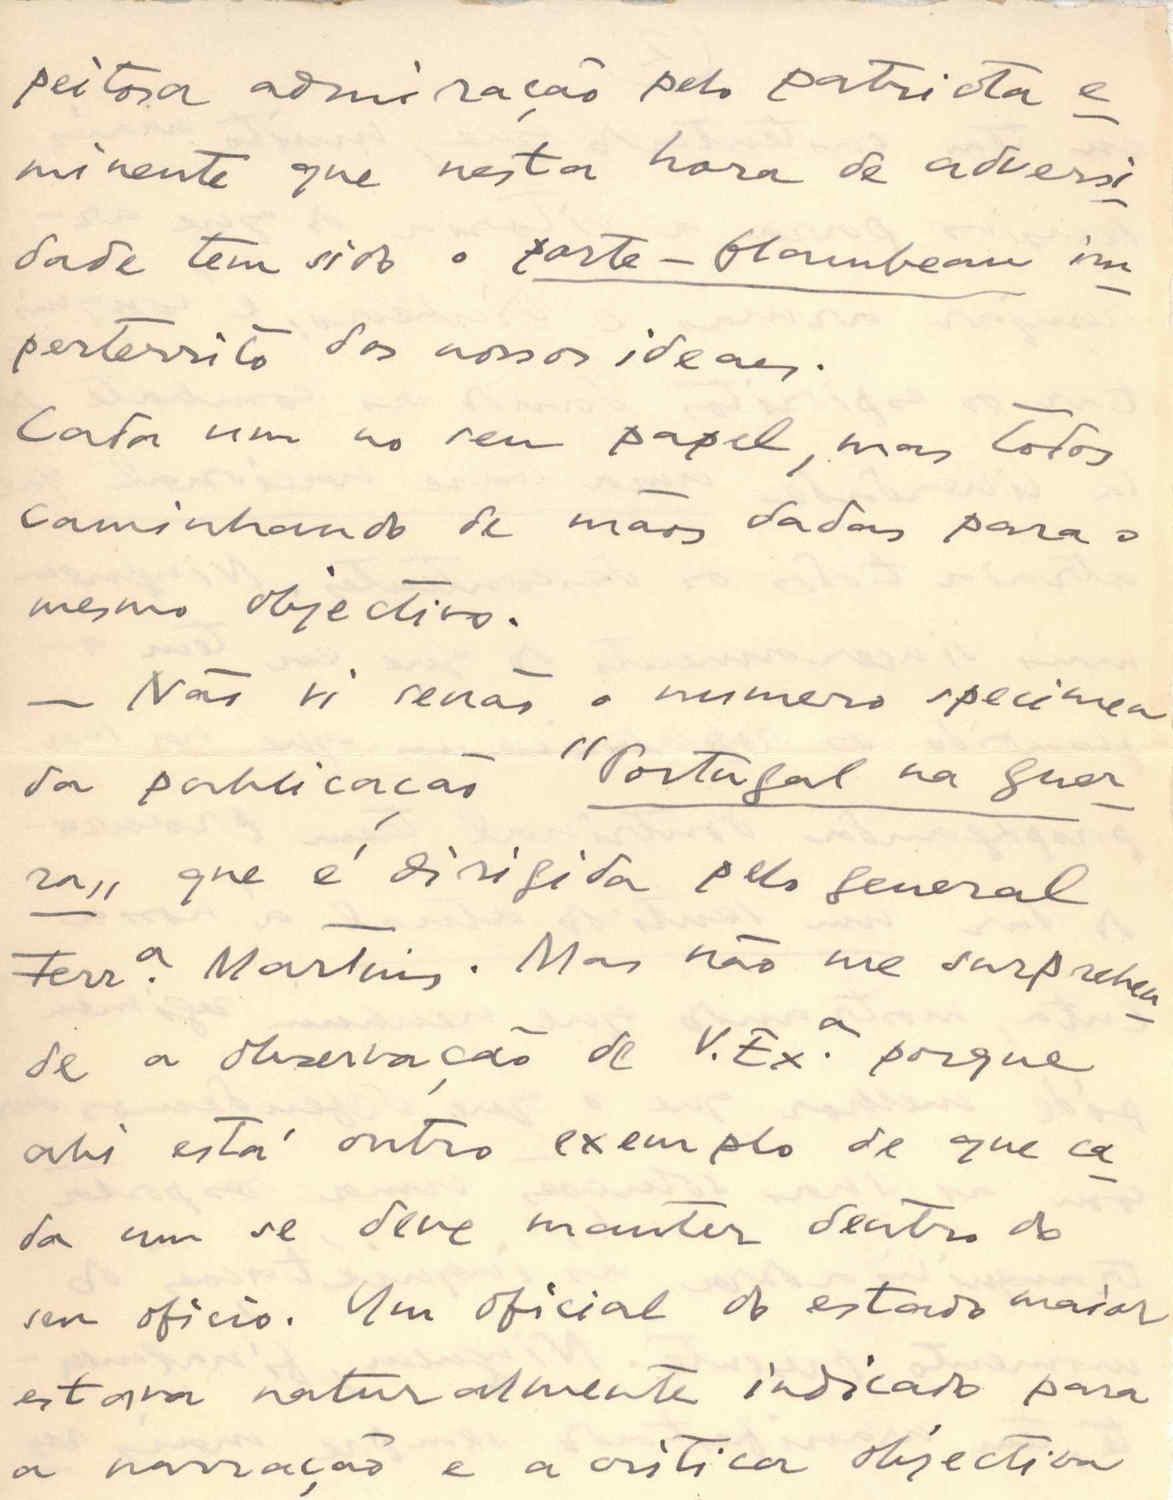 peitosa admiração pelo patriota e
minente que nesta hora de adversi
dade tem sido o porte-flambeau im
perterrito dos nossos ideaes.
Cada um no seu papel, mas todos
caminhando de mãos dadas para o
mesmo objectivo.
— Não vi senão o numero specimen
da publicação "Portugal na Guer
ra" que é dirigida pelo general
Ferr.ª Martins. Mas não me surprehen
de a observação de V. Ex.ª porque
ahi está outro exemplo de que ca
da um se deve manter dentro do
seu oficio. Um oficial do estado maior
estava naturalmente indicado para
a narração e a critica objectiva